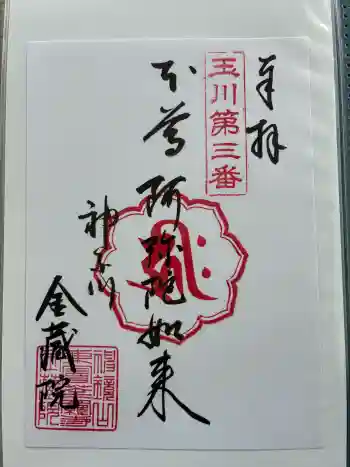 奉拝
玉川第三番
本尊 阿弥陀如来
神奈川
金蔵院